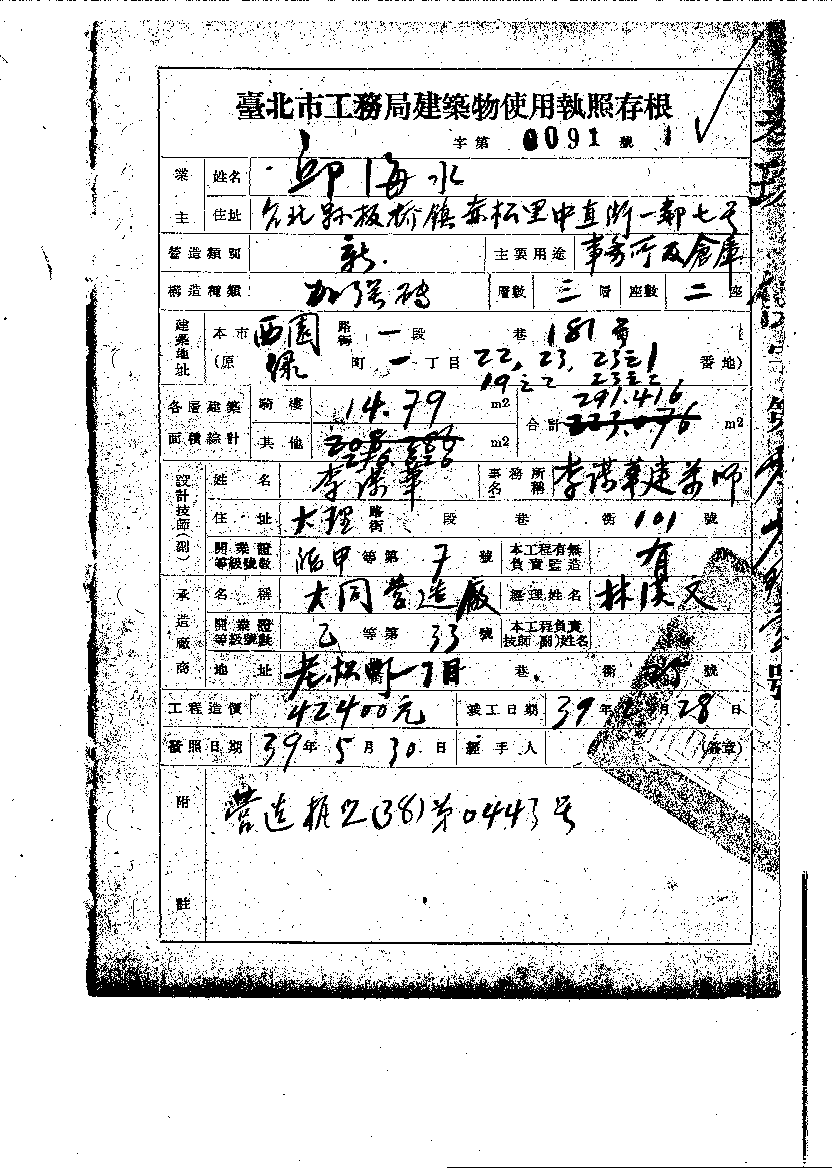 臺北市工務局建築物使用執照存根
字第 0091 號
業主 姓名 邱海水
住址 台北縣板橋鎮赤松里中直街一鄰七号
營造類別 新. 主要用途 事务所及倉庫
構造種類 加强磚 層數 三 層 座數 二 座
建築地址 本市 西園 路街 一 段 巷 181号
(原 綠 町 一 丁目 22, 23, 23之1 番地)
19之2 23之2
各層建築面積綜計 騎樓 14.79 m2 合計 291.416 223.076 m2
其他 m2
設計技師(副) 姓名 李謀華 事務所名稱 李謀華建築師
住址 大理 路街 段 巷 衖 101 號
開業證等級號數 臨甲 等第 7 號 本工程有無負責監造 有
承造廠商 名稱 大同營造廠 經理姓名 林漢文
開業證等級號數 乙 等第 33 號 本工程負責技師(副)姓名
地址 老松町一丁目 巷 衖 號
工程造價 42400元 竣工日期 39 年 月 28 日
發照日期 39 年 5 月 30 日 經手人 (簽章)
附註 營造執乙(38)第0443号